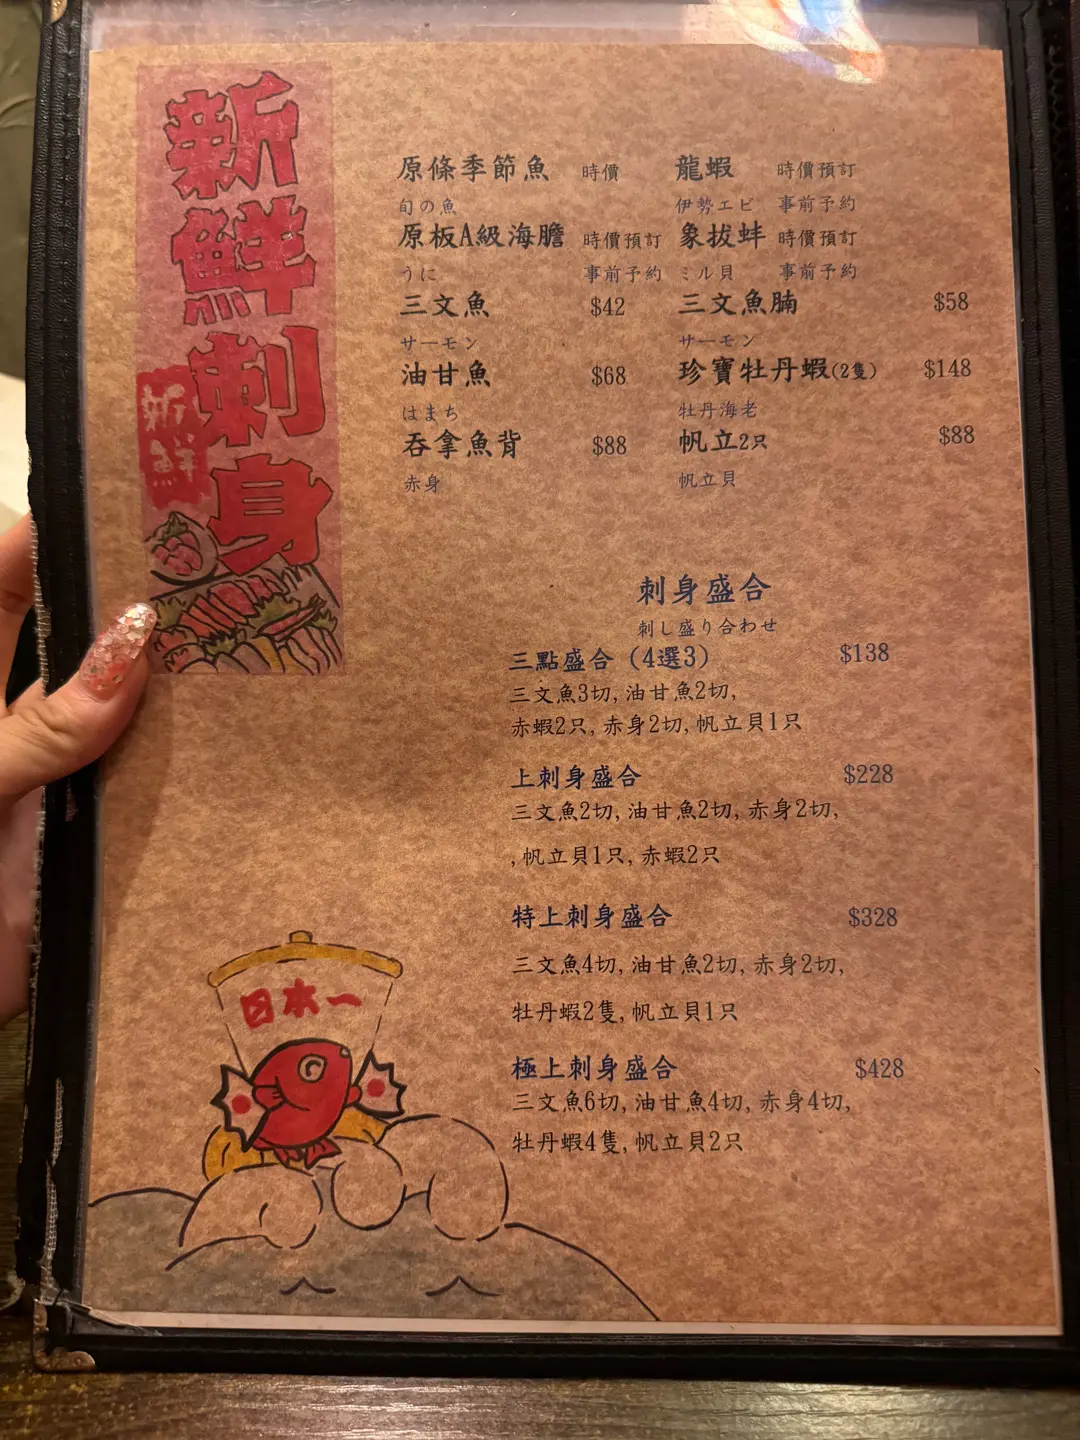 新鮮刺身
新鮮
原條季節魚 時價
旬の魚
原板A級海膽 時價預訂
うに 事前予約
三文魚 $42
サーモン
油甘魚 $68
はまち
吞拿魚背 $88
赤身
龍蝦 時價預訂
伊勢エビ 事前予約
象拔蚌 時價預訂
ミル貝 事前予約
三文魚腩 $58
サーモン
珍寶牡丹蝦(2隻) $148
牡丹海老
帆立2只 $88
帆立貝
刺身盛合
刺し盛り合わせ
三點盛合 (4選3) $138
三文魚3切, 油甘魚2切,
赤蝦2只, 赤身2切, 帆立貝1只
上刺身盛合 $228
三文魚2切, 油甘魚2切, 赤身2切,
, 帆立貝1只, 赤蝦2只
特上刺身盛合 $328
三文魚4切, 油甘魚2切, 赤身2切,
牡丹蝦2隻, 帆立貝1只
極上刺身盛合 $428
三文魚6切, 油甘魚4切, 赤身4切,
牡丹蝦4隻, 帆立貝2只
日本一